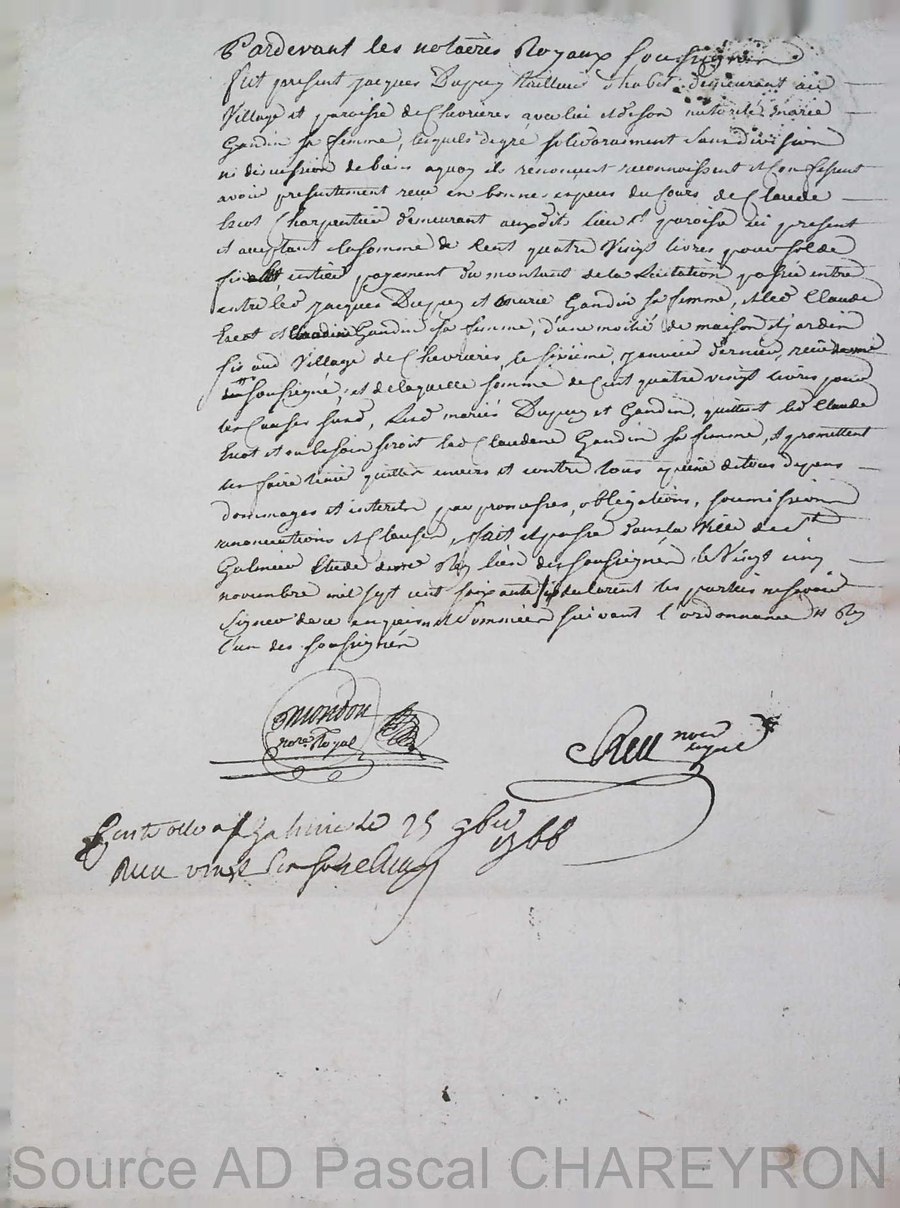 Pardevant les notaires Royaux soussignés
fut present jacques Dupuy tailleur d'habit demeurant au
Village et paroisse de Chevrieres avec lui et de son autorité marie
Gandin sa femme, lesquels de gré solidairement sans division
ni discussion de biens a quoy ils renoncent reconnoissent et Confessent
avoir presentement reçu en bonnes especes du Cours de Claude
Charpentier demeurant auxdits lieu et paroisse ici present
et acceptant la somme de Cent quatre Vingt livres pour solde
final, entier payement du montant de la Licitation passée entre
entre led jacques Dupuy et marie Gandin sa femme, et led Claude
et Claudine Gandin sa femme, d'une moitié de maison et jardin
sis aud Village de Chevrieres, le sixieme janvier dernier, reçue
soussigné, et de laquelle somme de Cent quatre vingt livres pour
les Causes susd, Lesd mariés Dupuy et Gandin, quittent led Claude
et au besoin seroit lad Claudine Gandin sa femme, et promettent
les faire tenir quittes envers et contre tous a peine de tous depens
dommages et interets par promesses, obligations, soumissions
renonciations et Clauses, fait et passé dans la Ville de St
Galmier Etude de me Rey l'un des soussignés le Vingt cinq
novembre mil sept cent soixante six declarent les parties ne savoir
signer de ce enquis et sommées suivant l'ordonnance et Rey
l'un des soussignés
mondon
nore Royal
Rey nore
royal
Controlle a St Galmier le 25 9bre 1766
Reçu vingt six sols
Source AD Pascal CHAREYRON